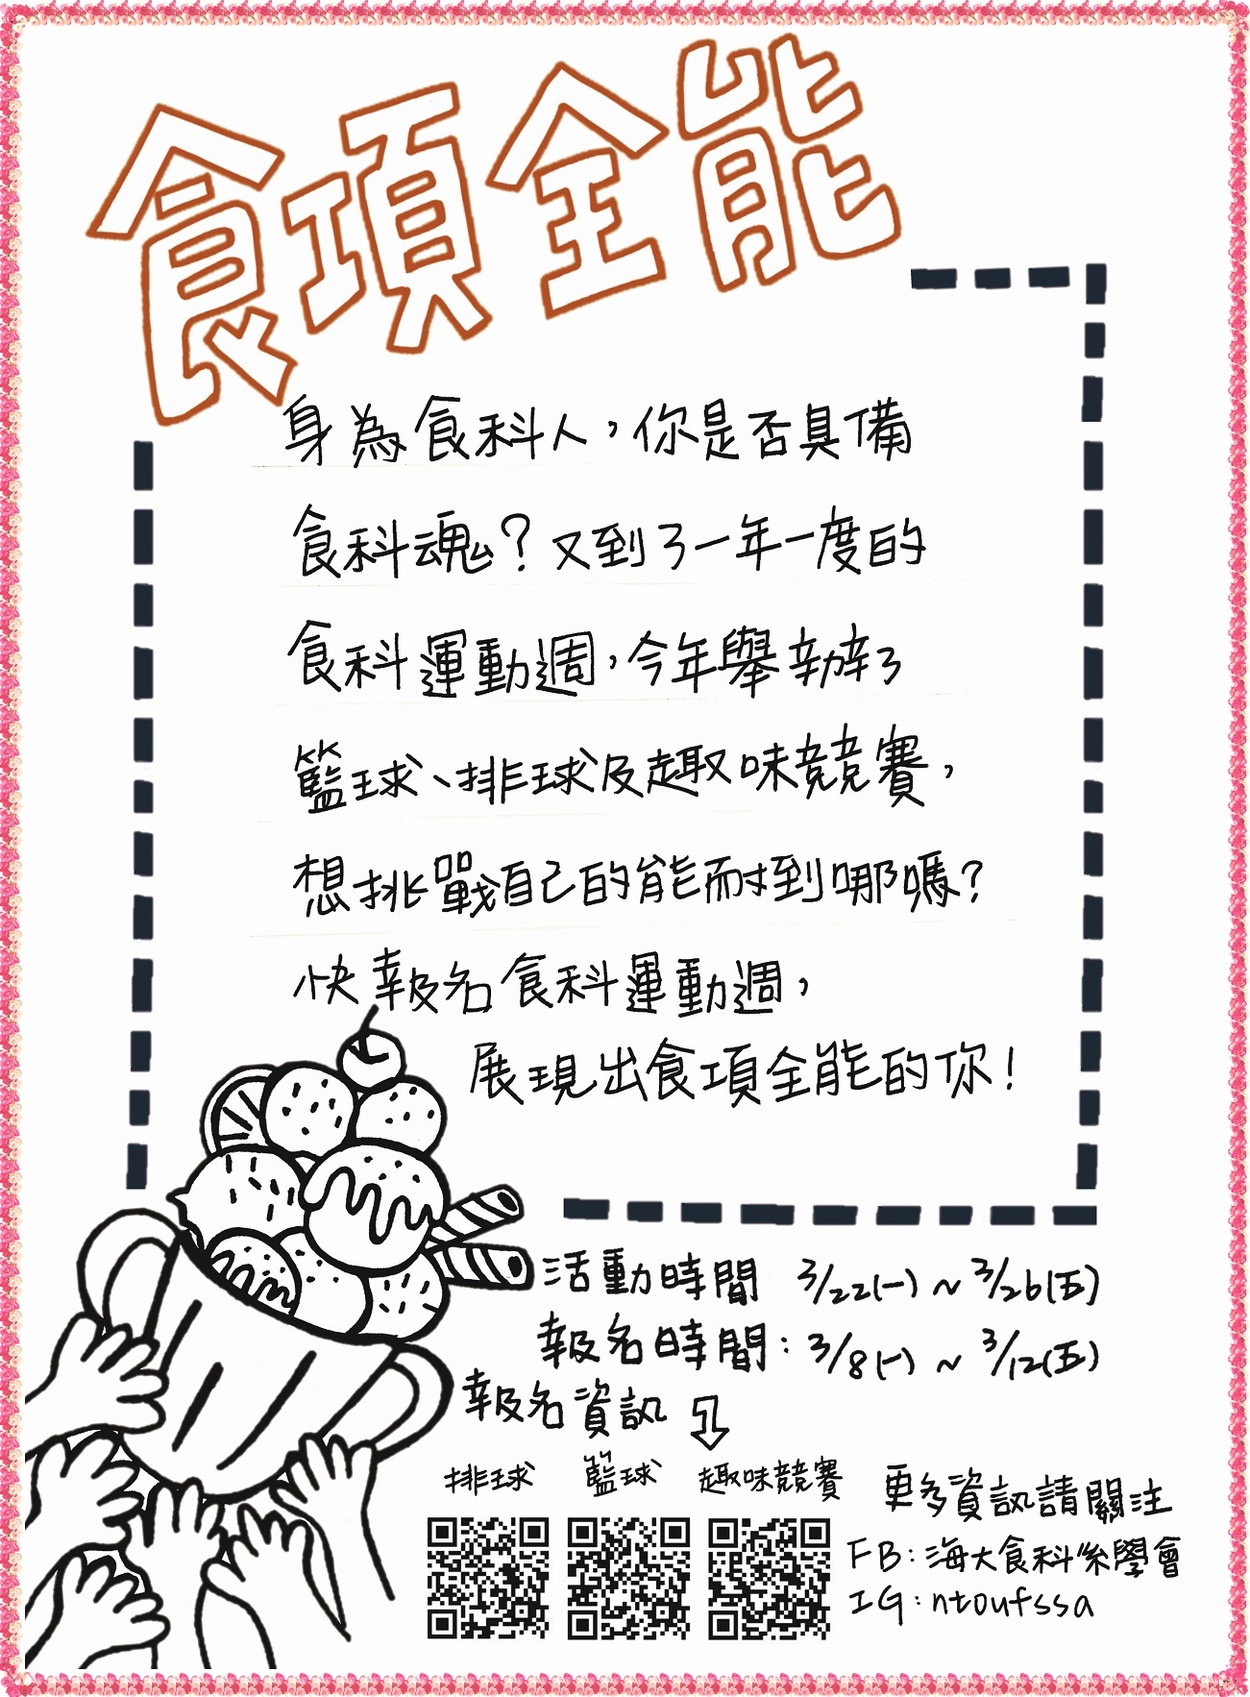 食項全能
身為食科人，你是否具備
食科魂？又到了一年一度的
食科運動週，今年舉辦了
籃球、排球及趣味競賽，
想挑戰自己的能耐到哪嗎？
快報名食科運動週，
展現出食項全能的你！
活動時間 3/22(一) ~ 3/26(五)
報名時間：3/8(一) ~ 3/12(五)
報名資訊
排球 籃球 趣味競賽
更多資訊請關注
FB：海大食科系學會
IG：ntoufssa